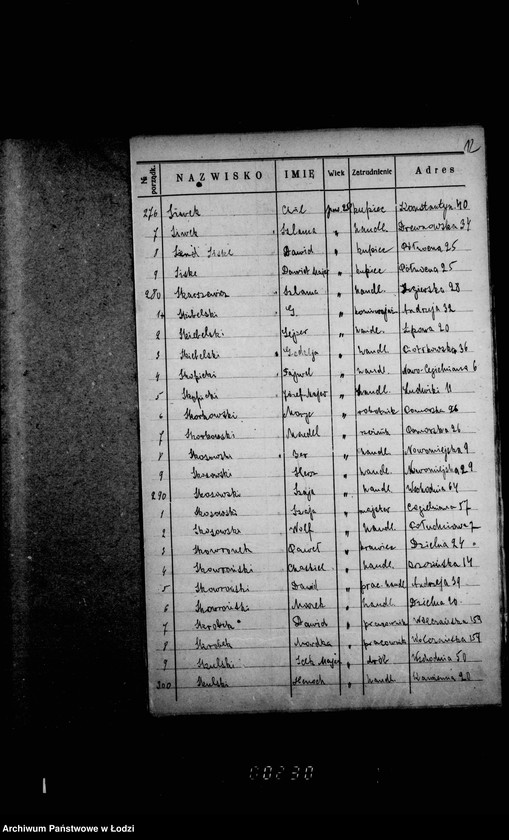 12
Nr porządk. NAZWISKO IMIĘ Wiek Zatrudnienie Adres
276 Siwek Chil pow. 25 kupiec Konstantyn. 40
7 Siwek Szlama " handl. Drewnowska 34
8 Dawid " kupiec Północna 25
9 Siske Dawid Majer " kupiec Północna 25
280 Szlama " handl. Zgierska 28
1 G. " Andrzeja 32
2 Skibelski " handl. Lipowa 20
3 Skibelski Godalja " handl. Piotrkowska 36
4 Skopicki " handl. Nowo-Cegielniana 6
5 Skopicki Josef Majer " handl. Ludwiki 11
6 Skorkowski " robotnik Pomorska 26
7 Skorkowski Mendel " Pomorska 26
8 Skosowski Ber " handl. Nowomiejska 9
9 Skosowski " handl. Nowomiejska 29
290 Skosowski Szaja " handl. Wschodnia 64
1 Skosowski Szaja " majster Cegielniana 57
2 Skosowski Wolf " handl. Południowa 7
3 Skowronek Paweł " krawiec Dzielna 24
4 Skowroński Chaskiel " handl. 14
5 Skowroński Dawid " prac. handl. Andrzeja 39
6 Skowroński Marek " handl. Dzielna 20
7 Skrobek Dawid " pracownik Wólczańska 158
8 Skrobek Mordka " pracownik Wólczańska 158
9 Skulski Icek Majer " Wschodnia 50
300 Skulski Henoch " handl.
00230
Archiwum Państwowe w Łodzi